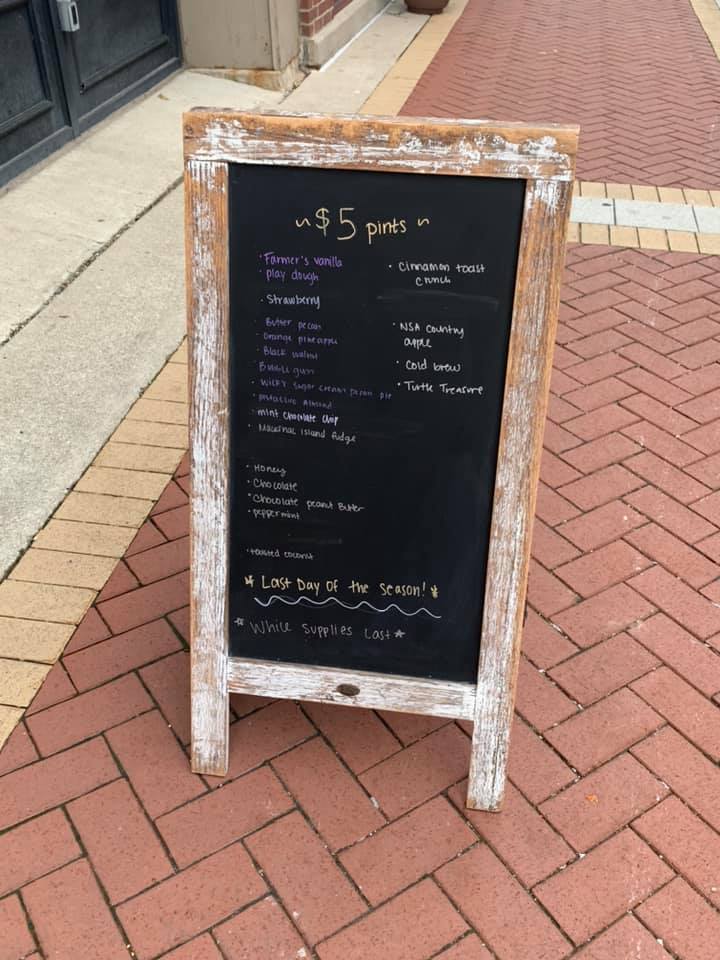 ~ $5 pints ~
· Farmer's vanilla
· play dough
· Strawberry
· Butter pecan
· Orange pineapple
· Black walnut
· Bubble gum
· Wicky Sugar cream pecan pie
· pistachio Almond
· mint Chocolate Chip
· Mackinac island fudge
· Honey
· Chocolate
· Chocolate peanut Butter
· peppermint
· toasted coconut
· Cinnamon toast
crunch
· NSA Country
apple
· Cold brew
· Turtle Treasure
* Last Day of the season! *
* While Supplies Last *